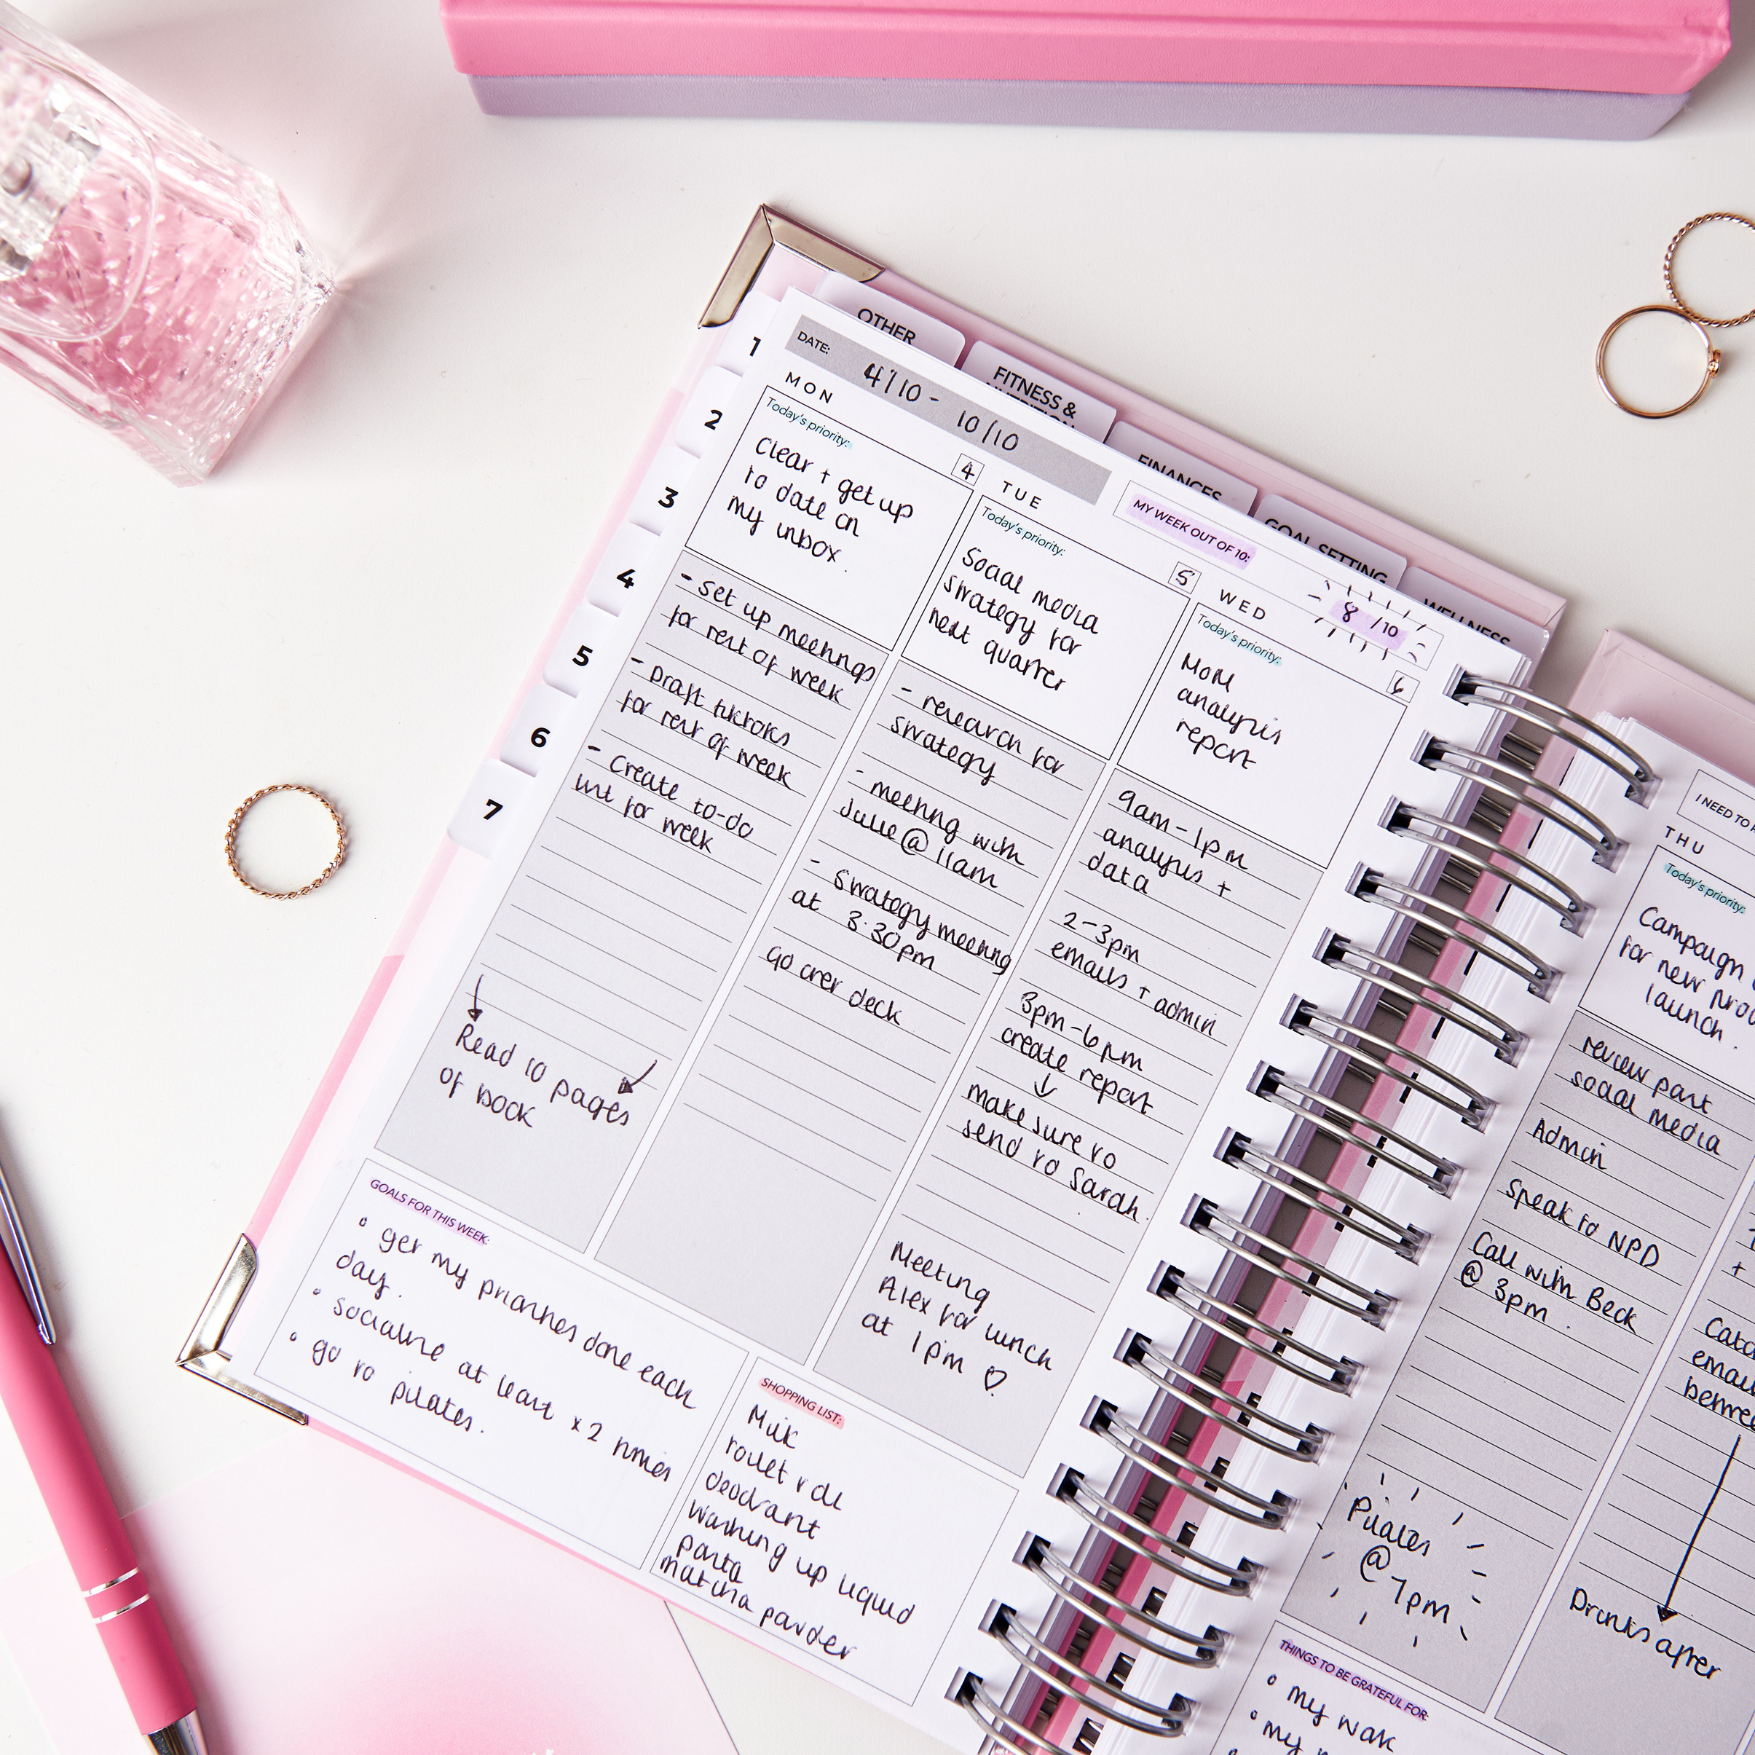 OTHER
FITNESS &
FINANCES
GOAL SETTING
WELLNESS
1
2
3
4
5
6
7
DATE: 4/10 - 10/10
MY WEEK OUT OF 10:
8 /10
MON
4
Today's priority:
Clear + get up
to date on
my inbox.
- set up meetings
for rest of week
- Draft
for rest of week
- Create to-do
list for week
Read 10 pages
of book
TUE
5
Today's priority:
Social media
strategy for
next quarter
- research for
strategy
- meeting with
Julie @ 11am
- Strategy meeting
at 3.30pm
Go over deck
WED
6
Today's priority:
MOM
analysis
report
9am-1pm
analysis +
data
2-3pm
emails + admin
3pm-6pm
create report
make sure to
send to Sarah.
Meeting
Alex for lunch
at 1pm ♡
GOALS FOR THIS WEEK:
• get my priorities done each
day.
• socialise at least x2 times
• go to pilates.
SHOPPING LIST:
Milk
toilet roll
deodrant
Washing up liquid
pasta
matcha powder
I NEED TO
THU
Today's priority:
Campaign
for new
launch.
review past
social media
Admin
Speak to NPD
Call with Beck
@ 3pm.
Pilates
@ 7pm
+
emails
Drinks after
THINGS TO BE GRATEFUL FOR:
• my
• my